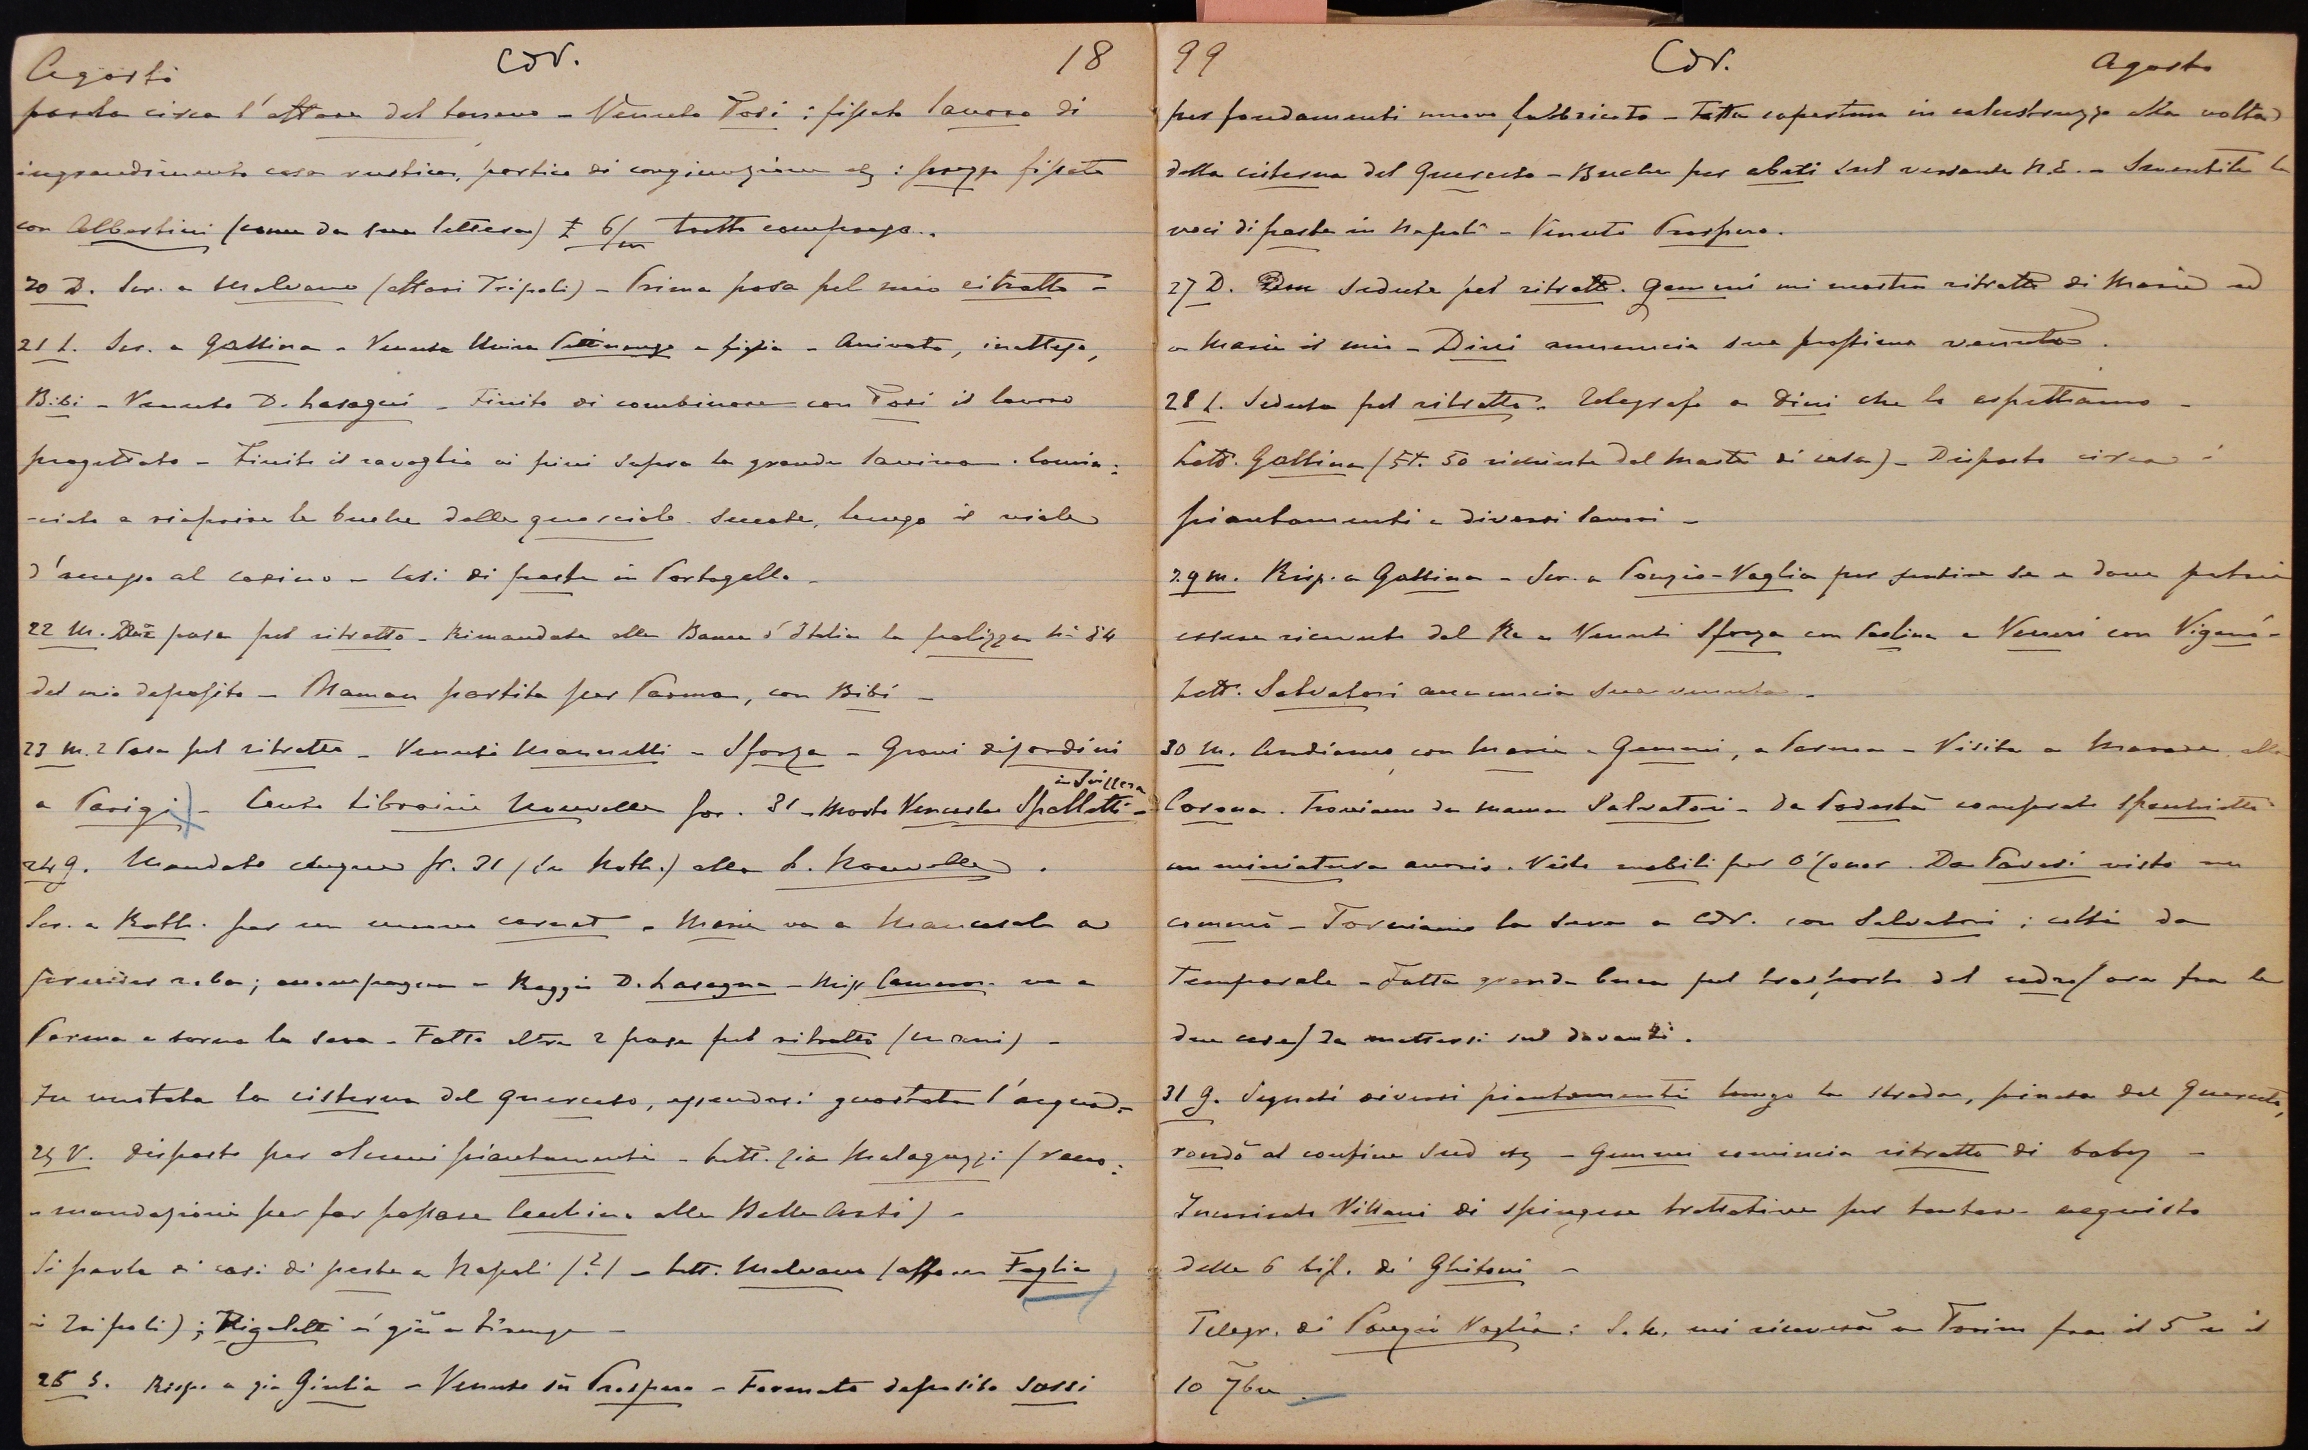 Agosto CdV. 18
parla circa l'affare del terreno - Venuto Tosi : fissato lavoro di
ingrandimento casa rustica, portico di congiunzione : prezzo fissato
con Albertini (come da sua lettera) £ 6/m tutto compreso.
20 D. Scr. a Malvano (affari Tripoli) - Prima posa pel mio ritratto -
21 L. Scr. a Gallina - Venuta e figlia - Arrivato, inatteso,
Bibi - Venuto D. Lasagni - Finito di combinare con Tosi il lavoro
progettato - Finito il ravaglio ai pini sopra la grande . Comin:
-ciato a riaprire le buche delle querciole seccate, lungo il viale
d'accesso al casino - Casi di peste in Portogallo -
22 M. Due pose pel ritratto - Rimandata alla Banca d'Italia la polizza N° 84
del mio deposito - Maman partita per Parma, con Bibi -
23 M. 2 Pose pel ritratto - Venuti Mancelli - Sforza - Gravi disordini
a Parigi - Conto Librairie Nouvelle for. 31 - Morto Venceslao Spalletti - in Svizzera
24 G. Mandato chèque fr. 31 (su Roth.) alla L. Nouvelle .
Scr. a Roth. per un nuovo carnet - Marie va a Mancasale a
prender roba; accompagna a Reggio D. Lasagna - Miss Cameron va a
Parma e torna la sera - Fatto altre 2 pose pel ritratto (mani) -
Fu vuotata la cisterna del Querceto, essendosi guastata l'acqua -
25 V. Disposto per alcuni piantamenti - Lett. zia Malaguzzi (racco:
-mandazione per far passare alle Belle Arti) -
Si parla di casi di peste a Napoli (?) - Lett. Malvano (affare Foglia
in Tripoli) ; è già a Firenze -
26 S. Risp. a zia Giulia - Venuto S. Prospero - Formato deposito sassi
99 CdV. Agosto
per fondamenti nuovo fabbricato - Fatta copertura in calcestruzzo alla volta
della cisterna del Querceto - Buche per abeti sul versante N.E. - Smentite le
voci di peste in Napoli - Venuto Prospero.
27 D. Due sedute pel ritratto. Gemmi mi mostra ritratto di Marie ed
a Marie il mio - Dini annuncia sua prossima venuta .
28 L. Seduta pel ritratto - Telegrafo a Dini che lo aspettiamo -
Lett. Gallina (St. 50 richieste dal Mastro di casa) - Disposto circa i
piantamenti e diversi lavori -
29 M. Risp. a Gallina - Scr. a Ponzio-Vaglia per sentire se e dove potrei
essere ricevuto dal Re - Venuti Sforza con Paolina e Venerì con Viganò -
Lett. Salvatori annuncia sua venuta -
30 M. Andiamo, con Marie e Gemmi, a Parma - Visita a alla
Corona. Troviamo da maman Salvatori - Da Podestà comperato specchietto
con miniatura avorio. Visto mobili per . Da Pavesi visto un
comò - Torniamo la sera a CdV. con Salvatori ; colti da
temporale - Fatta grande buca pel trasporto del cedro (ora fra le
due case) da mettersi sul davanti.
31 G. Segnati diversi piantamenti lungo la strada, pineta del Querceto,
rondò al confine Sud - Gemmi comincia ritratto di baby -
Incaricato Villani di spingere trattative per tentare acquisto
delle 6 bif. di Ghitoni -
Telegr. di Ponzio Vaglia : S. M. mi riceverà a Torino fra il 5 e il
10 7bre .